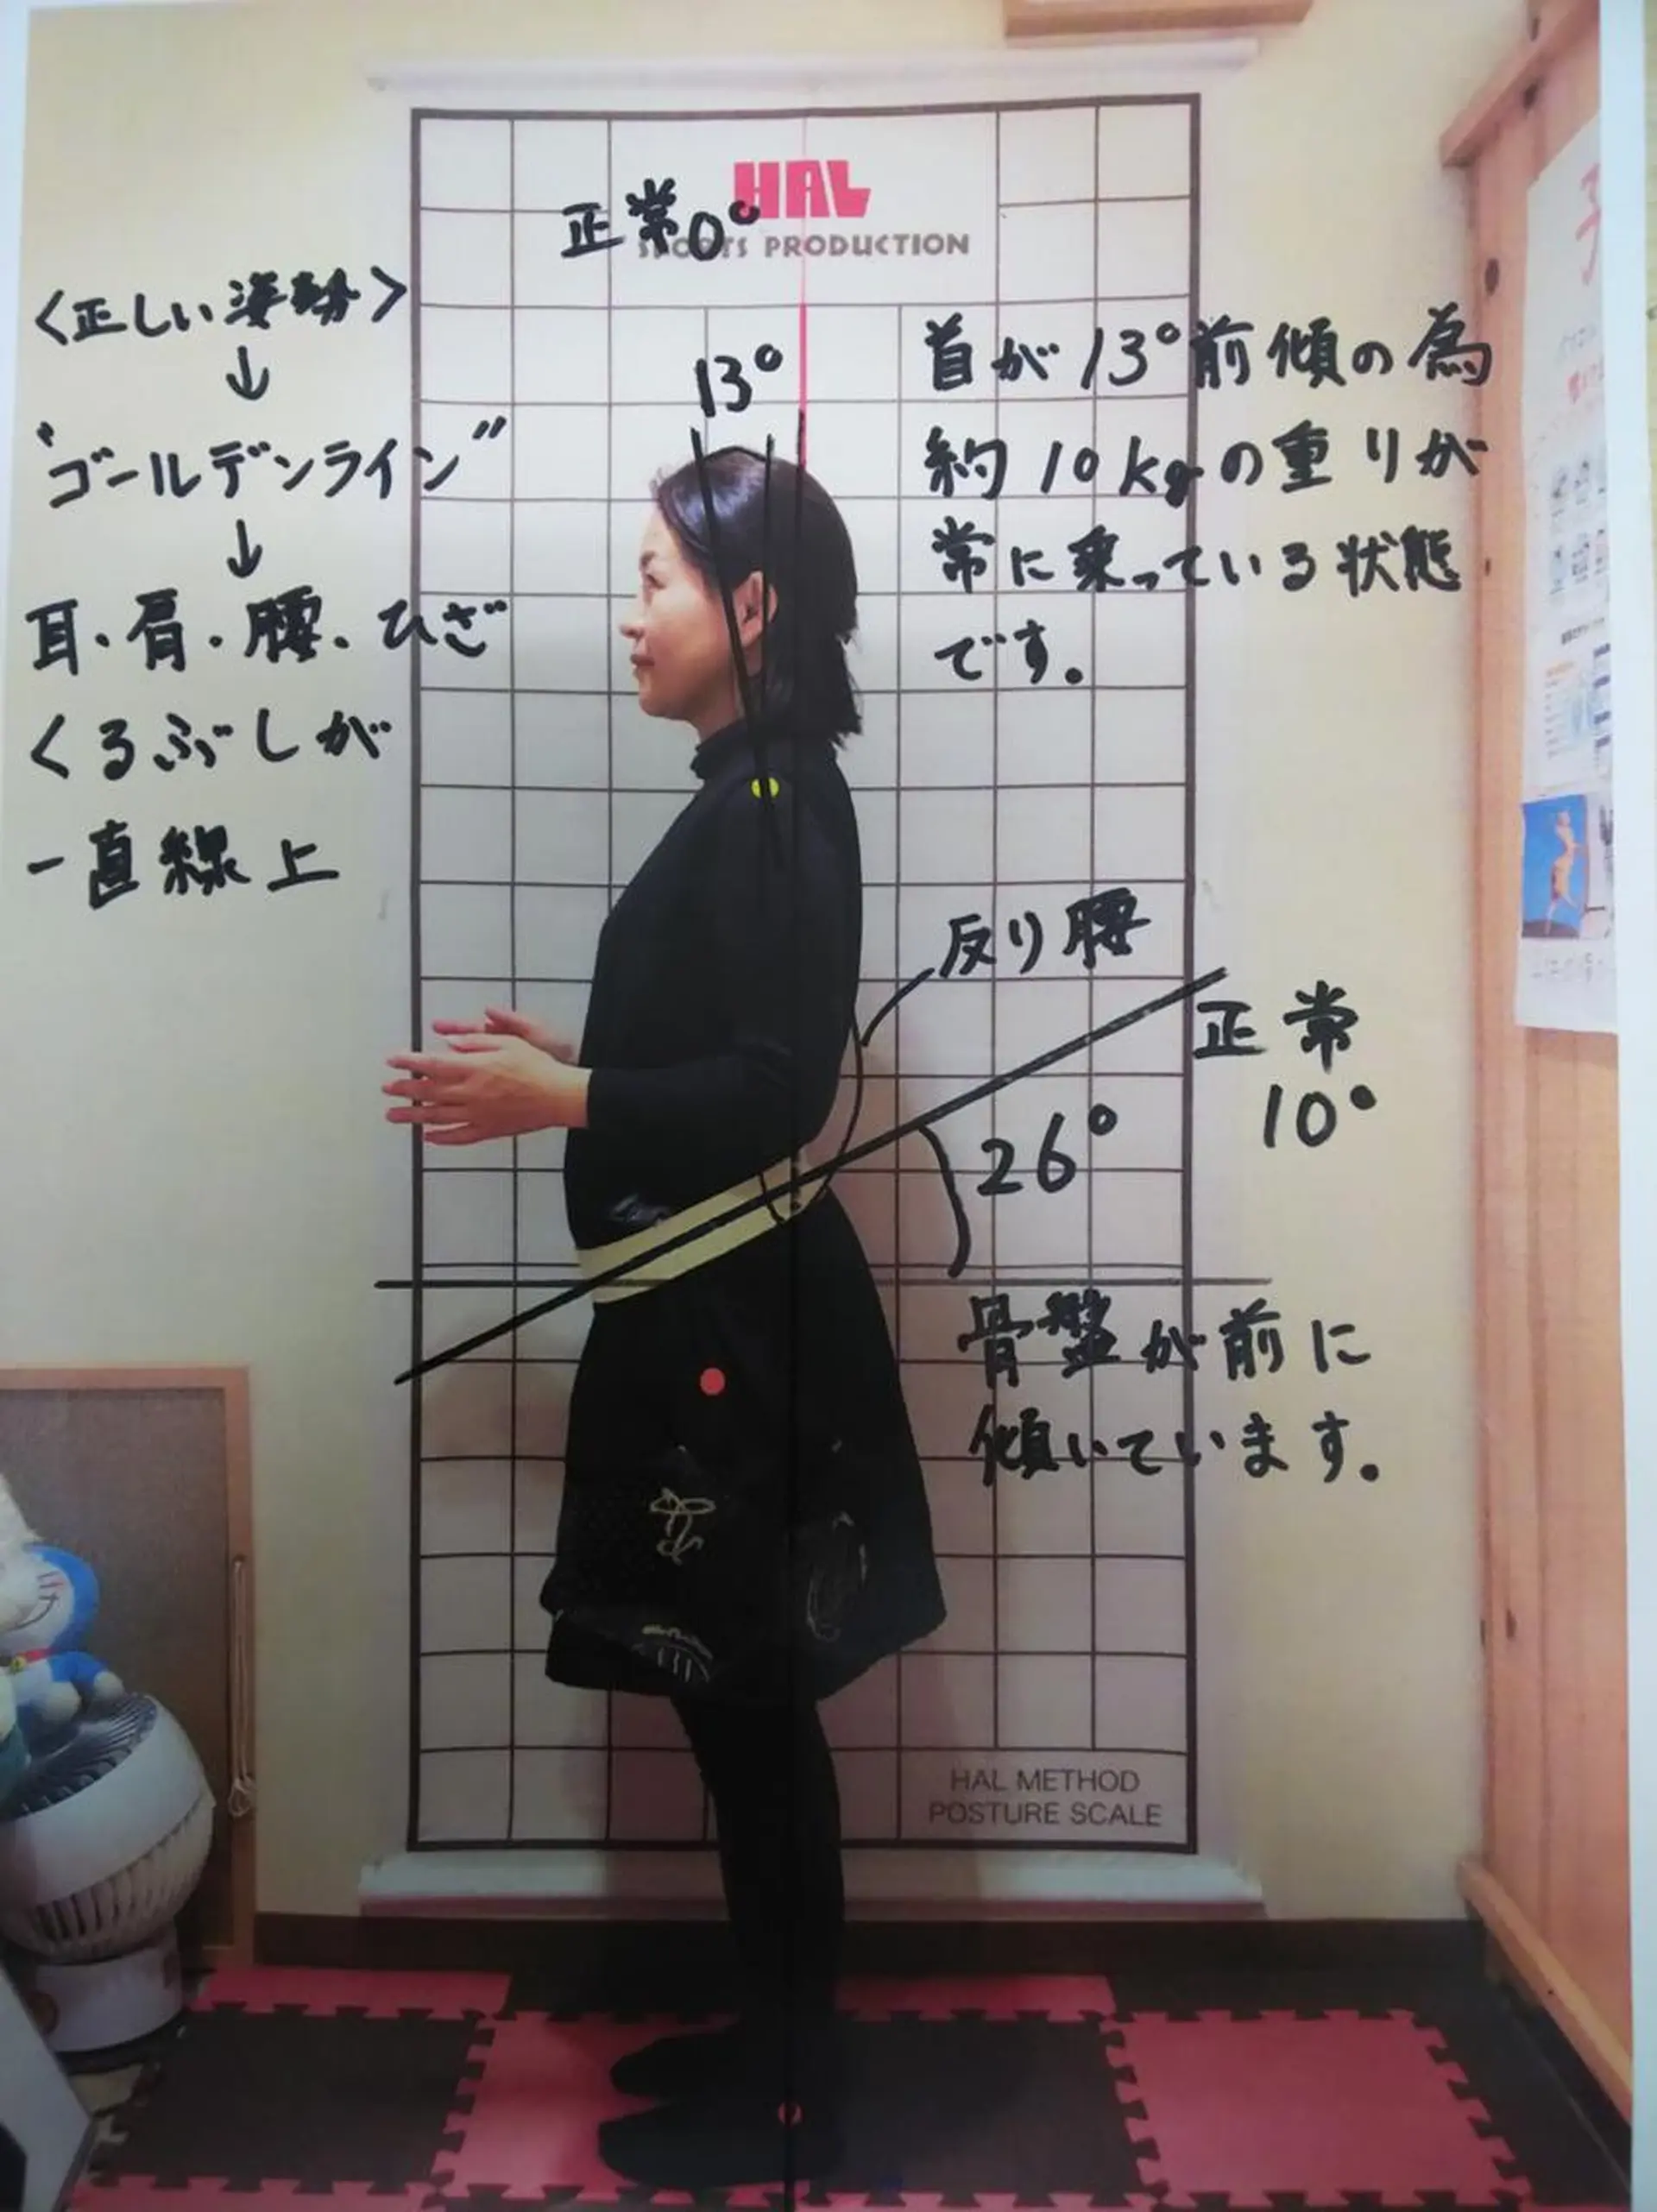 HAL
SPORTS PRODUCTION
正常0°
<正しい姿勢>
↓
"ゴールデンライン"
↓
耳・肩・腰・ひざ
くるぶしが
一直線上
13°
首が13°前傾の為
約10kgの重りが
常に乗っている状態
です。
反り腰
正常
10°
26°
骨盤が前に
傾いています。
HAL METHOD
POSTURE SCALE